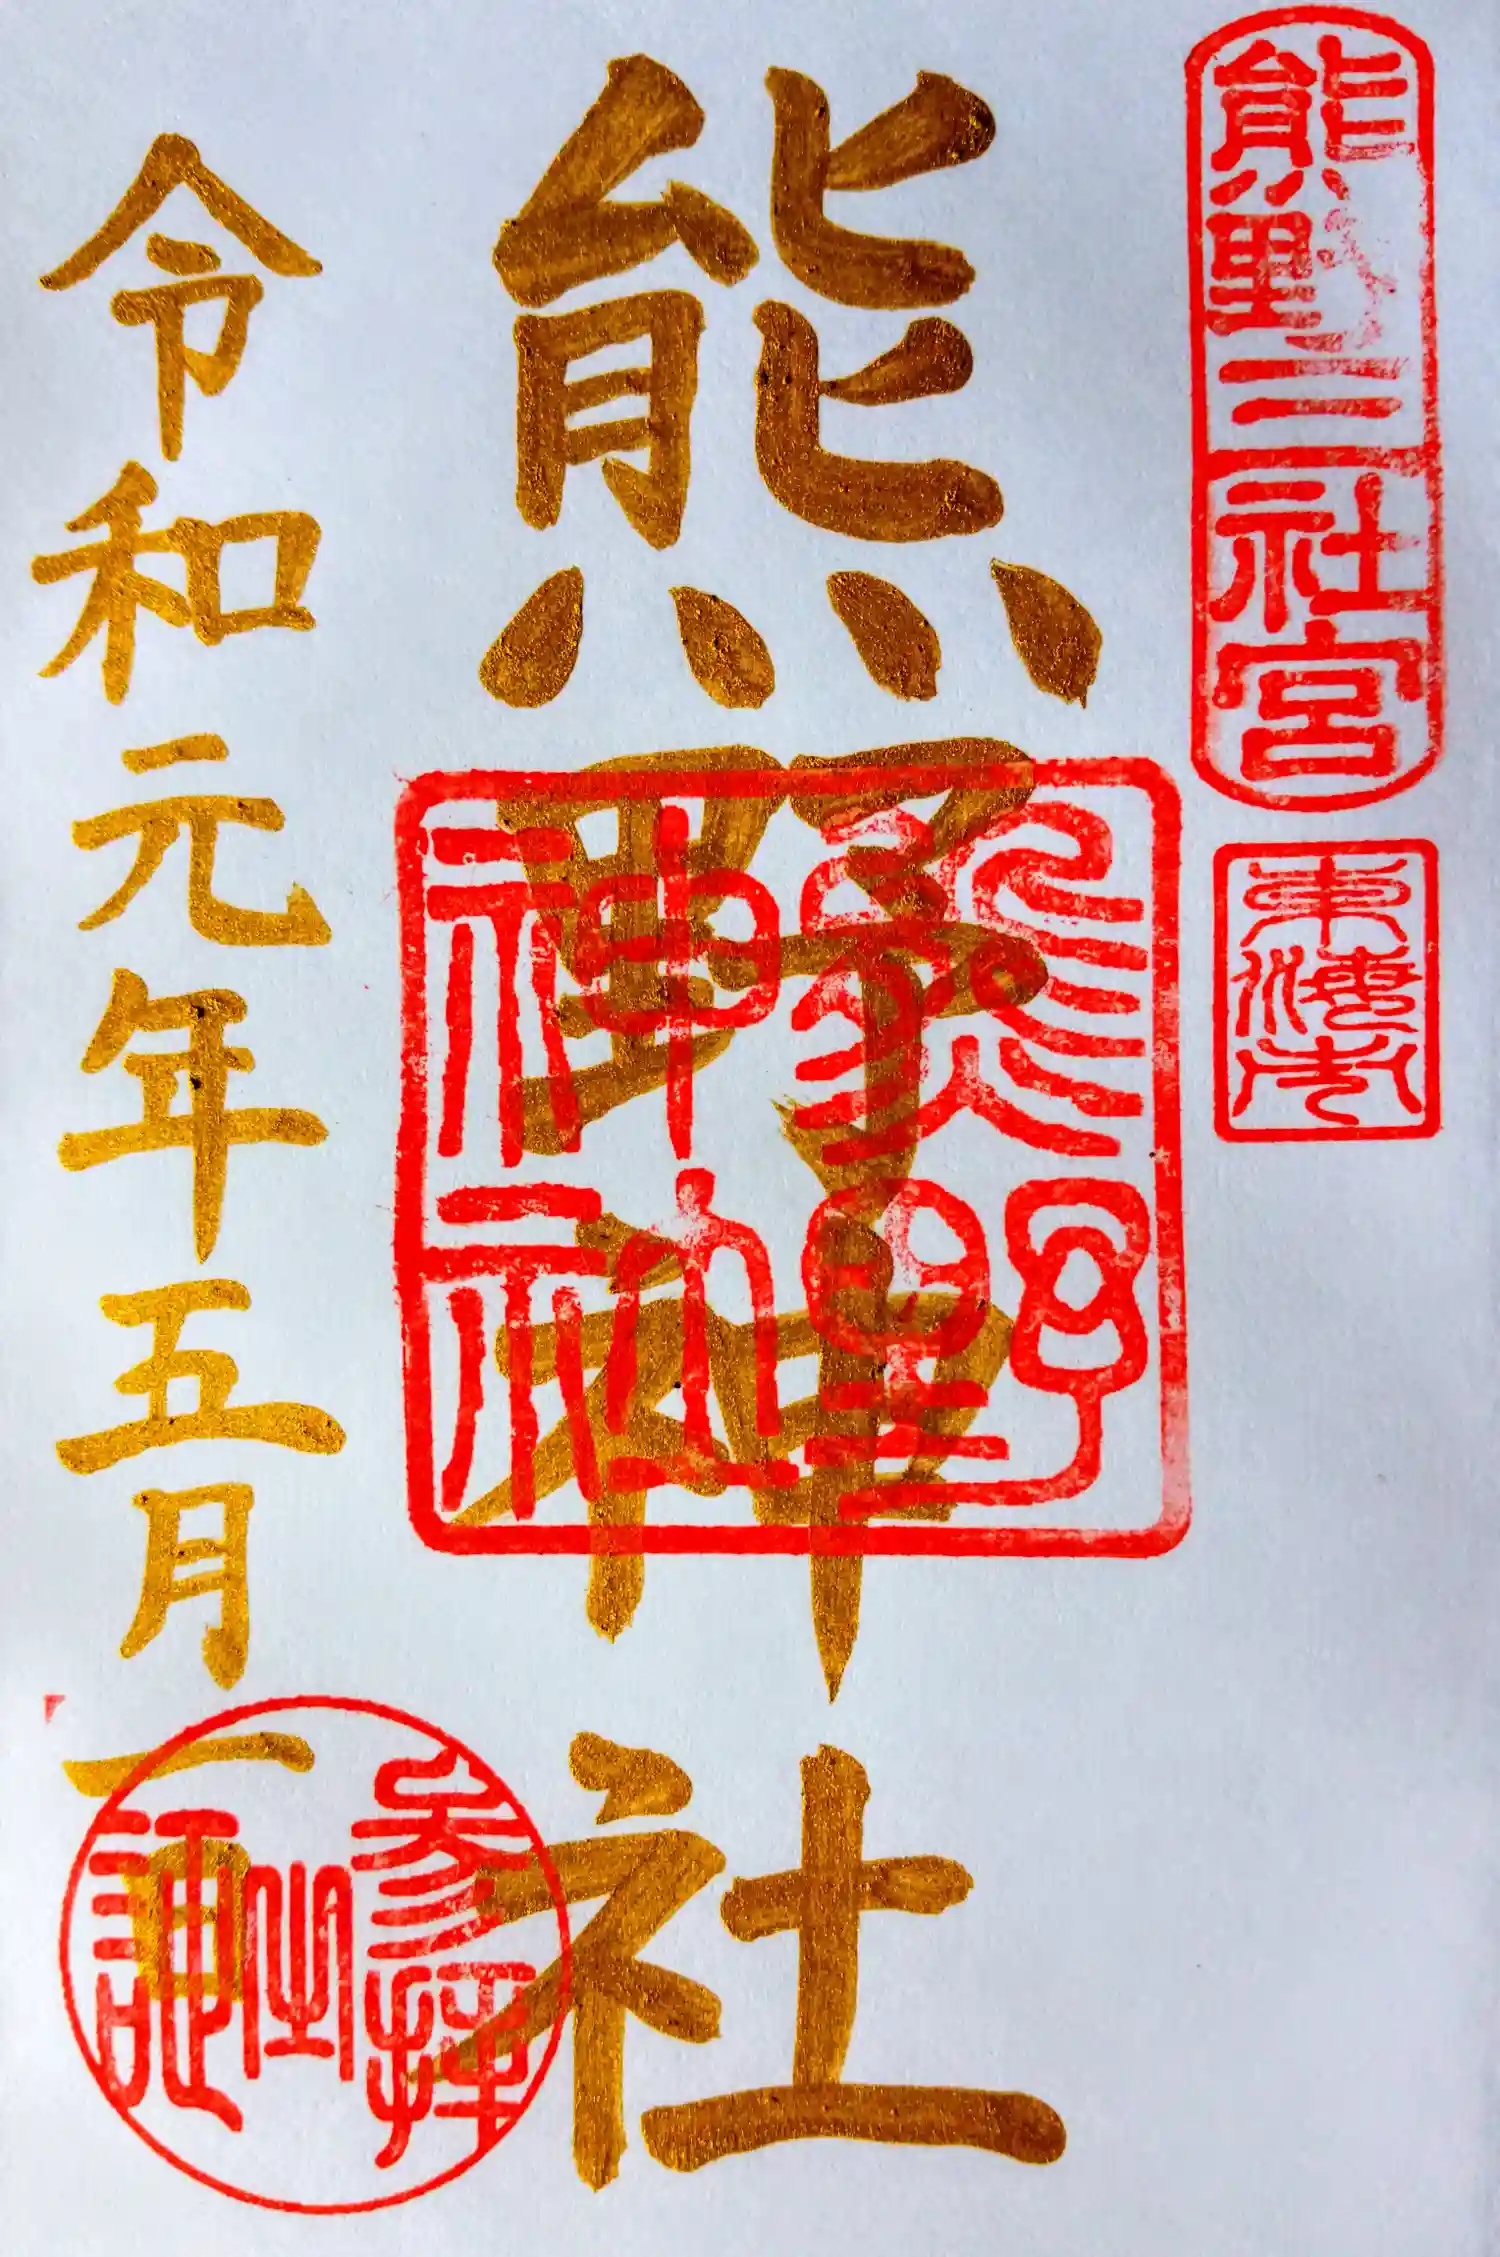 熊野三社宮
東海市
熊野神社
熊野
神社
令和元年五月一日
参拝